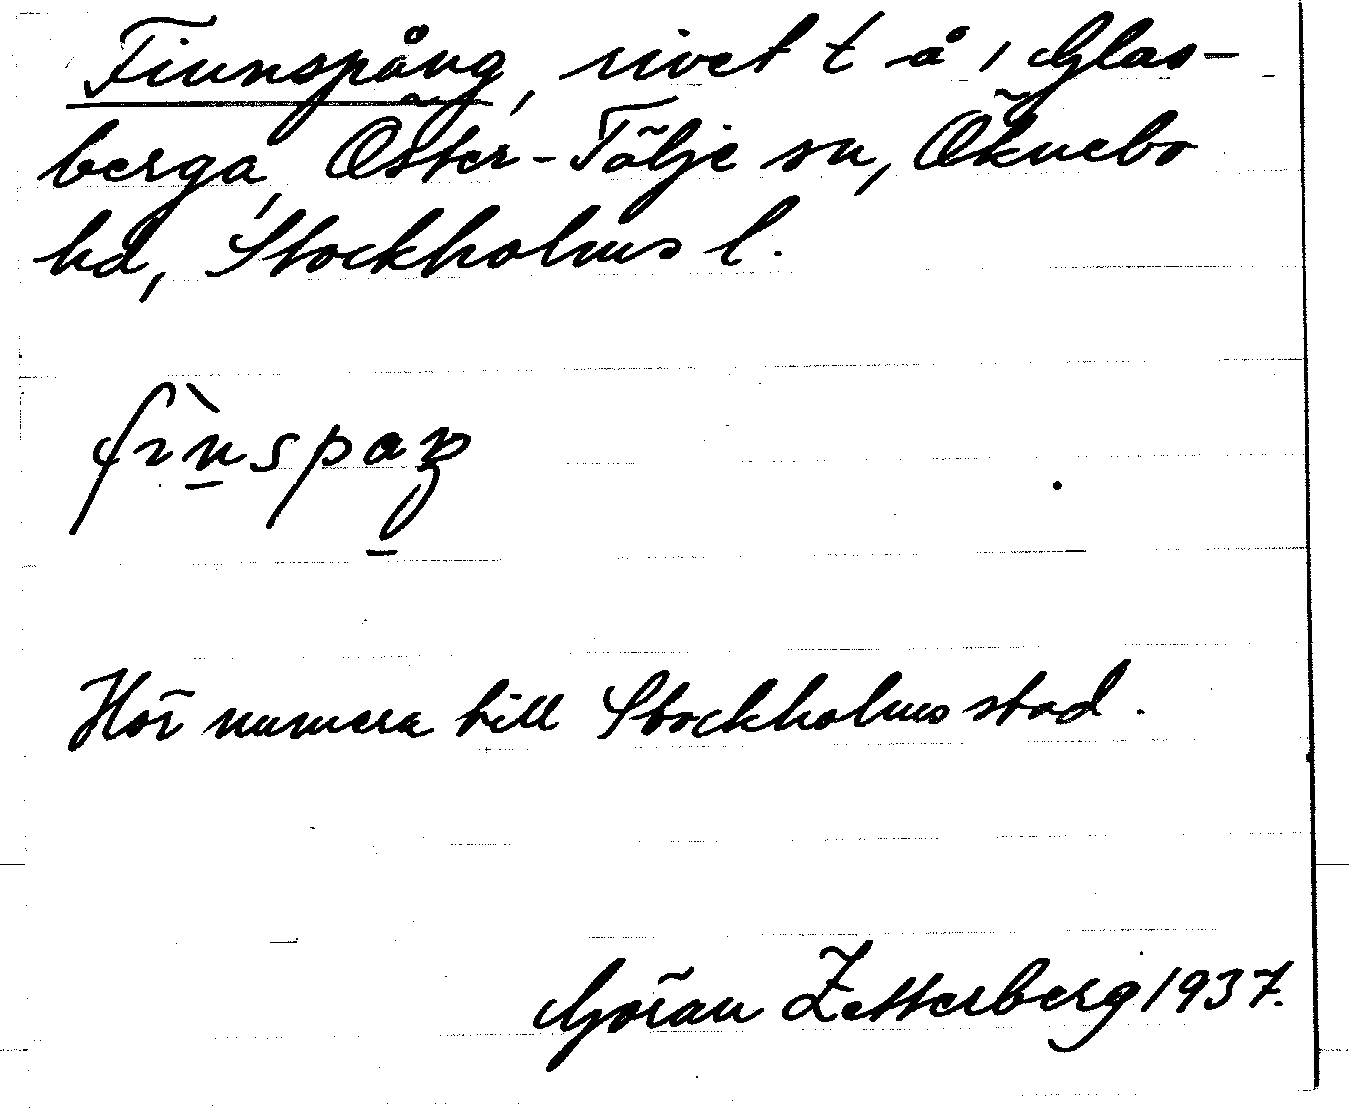 Finnspång, rivet t å i Glas-
berga, Öster-Tälje sn, Öknebo
hd, Stockholms l.
fìnspaŋ
Hör numera till Stockholms stad.
Göran Zetterberg 1937.